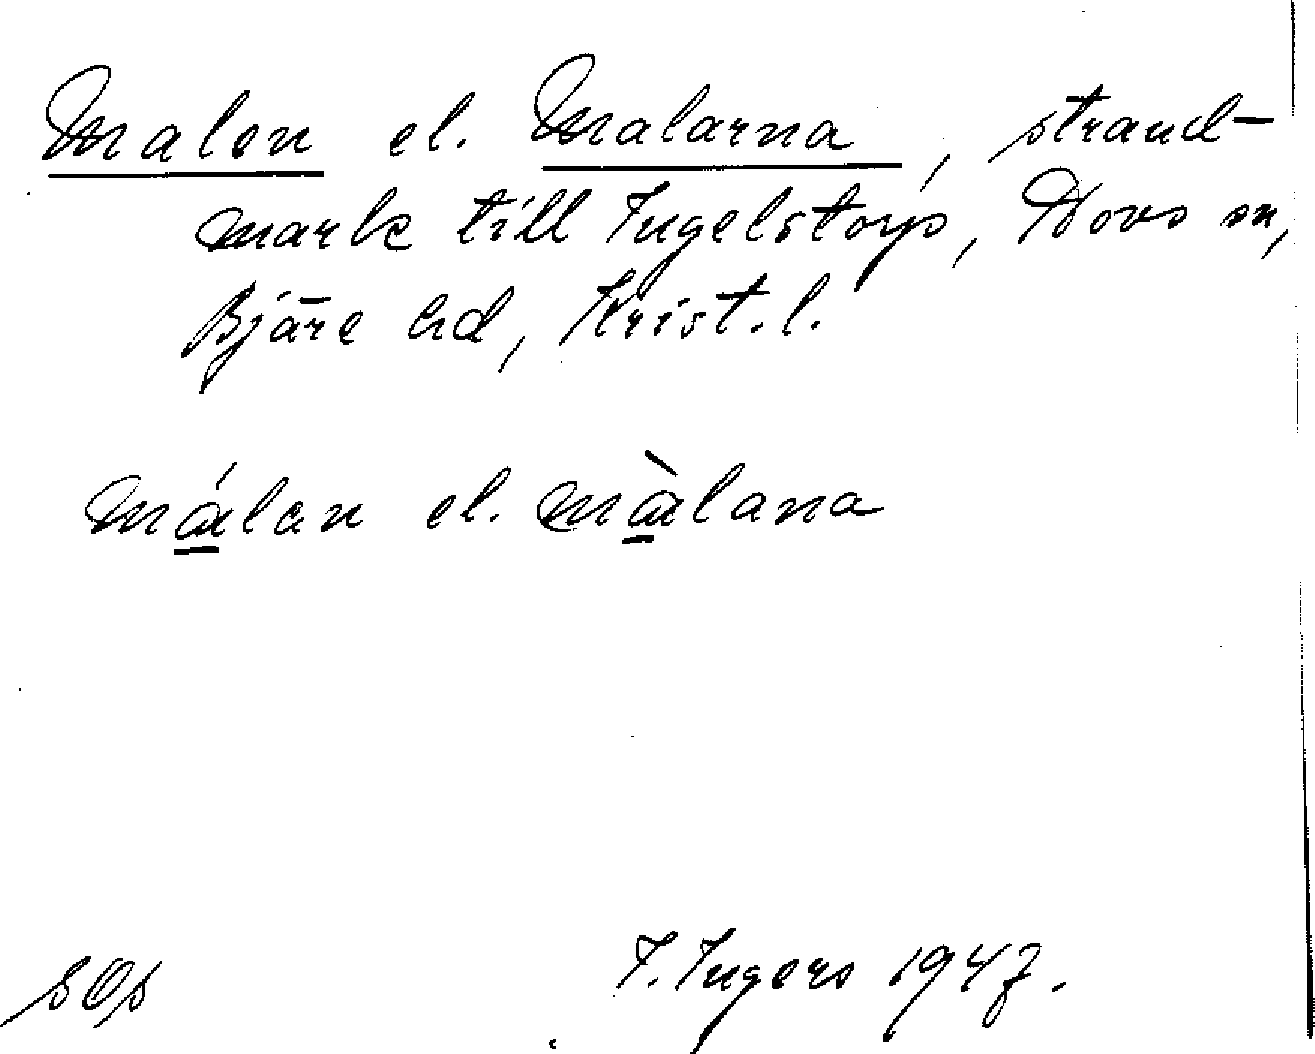 Malen el. Malarna, strand-
mark till Ingelstorp, Hovs sn,
Bjäre hd, Krist. l.
málan el. màlana
I. Ingers 1947.